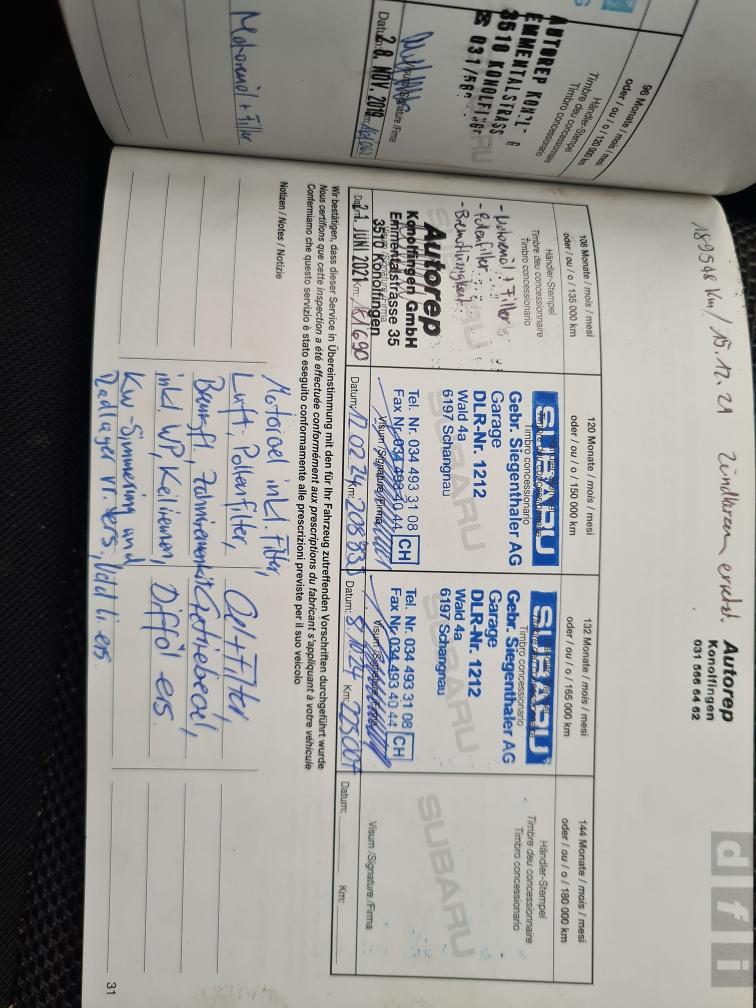 96 Monate / mois / mesi
oder / ou / o / 120 000 km
Händler-Stempel
Timbre du concessionnaire
Timbro concessionario
AUTOREP KON
EMMENTALSTRASS
3510 KONOLFINGE
☎ 031/56
Visum /Signature /Firma
Datum: 28. NOV. 2019
Km:
Motorenöl + Filter
189548 Km / 15.12.21
Zündkerzen ersetzt.
Autorep
Konolfingen
031 566 64 62
d f i
108 Monate / mois / mesi
oder / ou / o / 135 000 km
Händler-Stempel
Timbre du concessionnaire
Timbro concessionario
- Motorenöl + Filter
- Pollenfilter
- Bremsflüssigkeit
SUBARU
Autorep
Konolfingen GmbH
Emmentalstrasse 35
3510 Konolfingen
Visum /Signature /Firma
Datum: 21. JUNI 2021
Km:
120 Monate / mois / mesi
oder / ou / o / 150 000 km
SUBARU
Timbro concessionario
Gebr. Siegenthaler AG
Garage
DLR-Nr. 1212
Wald 4a
6197 Schangnau
SUBARU
Tel. Nr. 034 493 31 08
Fax Nr. 034 493 40 44 CH
Visum /Signature /Firma
Datum: 12 02 24 Km: 208 933
132 Monate / mois / mesi
oder / ou / o / 165 000 km
SUBARU
Timbro concessionario
Gebr. Siegenthaler AG
Garage
DLR-Nr. 1212
Wald 4a
6197 Schangnau
SUBARU
Tel. Nr. 034 493 31 08
Fax Nr. 034 493 40 44 CH
Visum /Signature /Firma
Datum: 8.10.24 Km: 225007
144 Monate / mois / mesi
oder / ou / o / 180 000 km
Händler-Stempel
Timbre du concessionnaire
Timbro concessionario
SUBARU
Visum /Signature /Firma
Datum: Km:
Wir bestätigen, dass dieser Service in Übereinstimmung mit den für Ihr Fahrzeug zutreffenden Vorschriften durchgeführt wurde
Nous certifions que cette inspection a été effectuée conformément aux prescriptions du fabricant s'appliquant à votre véhicule
Confermiamo che questo servizio è stato eseguito conformamente alle prescrizioni previste per il suo veicolo
Notizen / Notes / Notizie
Motoroel inkl. Filter,
Luft, Pollenfilter, Oel + Filter,
Bremsfl., Zahnriemenkit Getriebeoel,
inkl. WP, Keilriemen, Difföl ers.
KW-Simmering und
Radlager vr. ers.
31